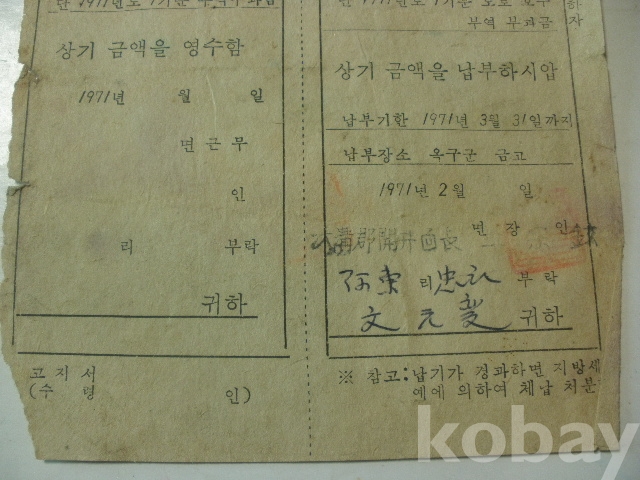 상기 금액을 영수함
1971년 월 일
면 근 무
인
리 부락
귀하
고 지 서
(수 령 인)
부역 부과금
상기 금액을 납부하시압
납부기한 1971년 3월 31일까지
납부장소 옥구군 금고
1971년 2월 일
郡開井面長
면 장 인
東 리 忠 부 락
文 元 귀하
※ 참고: 납기가 경과하면 지방세
예에 의하여 체납 처분
kobay